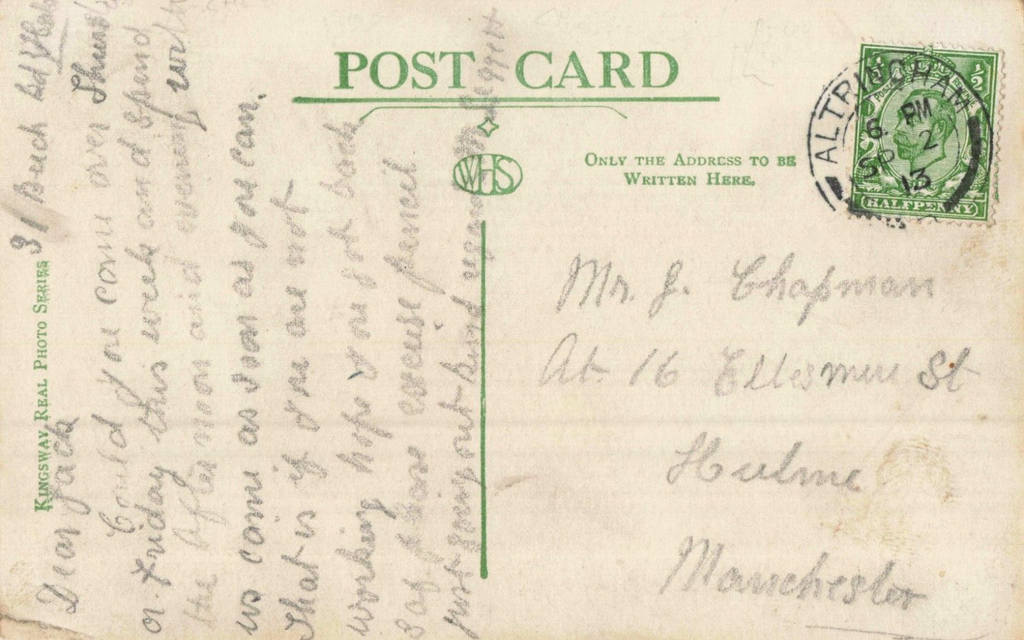 POST CARD
WHS
ONLY THE ADDRESS TO BE
WRITTEN HERE.
ALTRINCHAM
6. PM
SP 2
13
HALFPENNY
KINGSWAY REAL PHOTO SERIES
Mr. J. Chapman
At. 16 Ellesmere St
Hulme
Manchester
31 Rd
Dear Jack
Could you come over Thurs
or Friday this week and spend
the afternoon and evening with
us come as soon as you can.
That is if you are not
working hope you got back
safe please excuse pencil
just going out kind regards